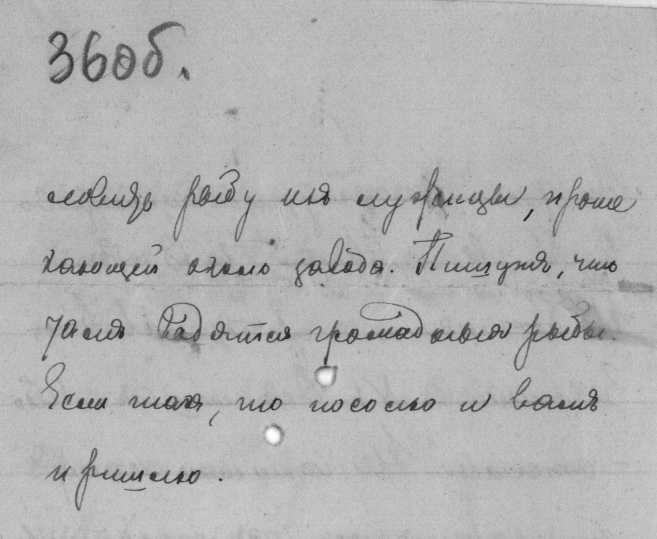 36об.
ловить рыбу из лужицы, проте
кающей около завода. Пишутъ, что
тамъ водятся громадныя рыбы.
Если такъ, то посолю и вамъ
пришлю.